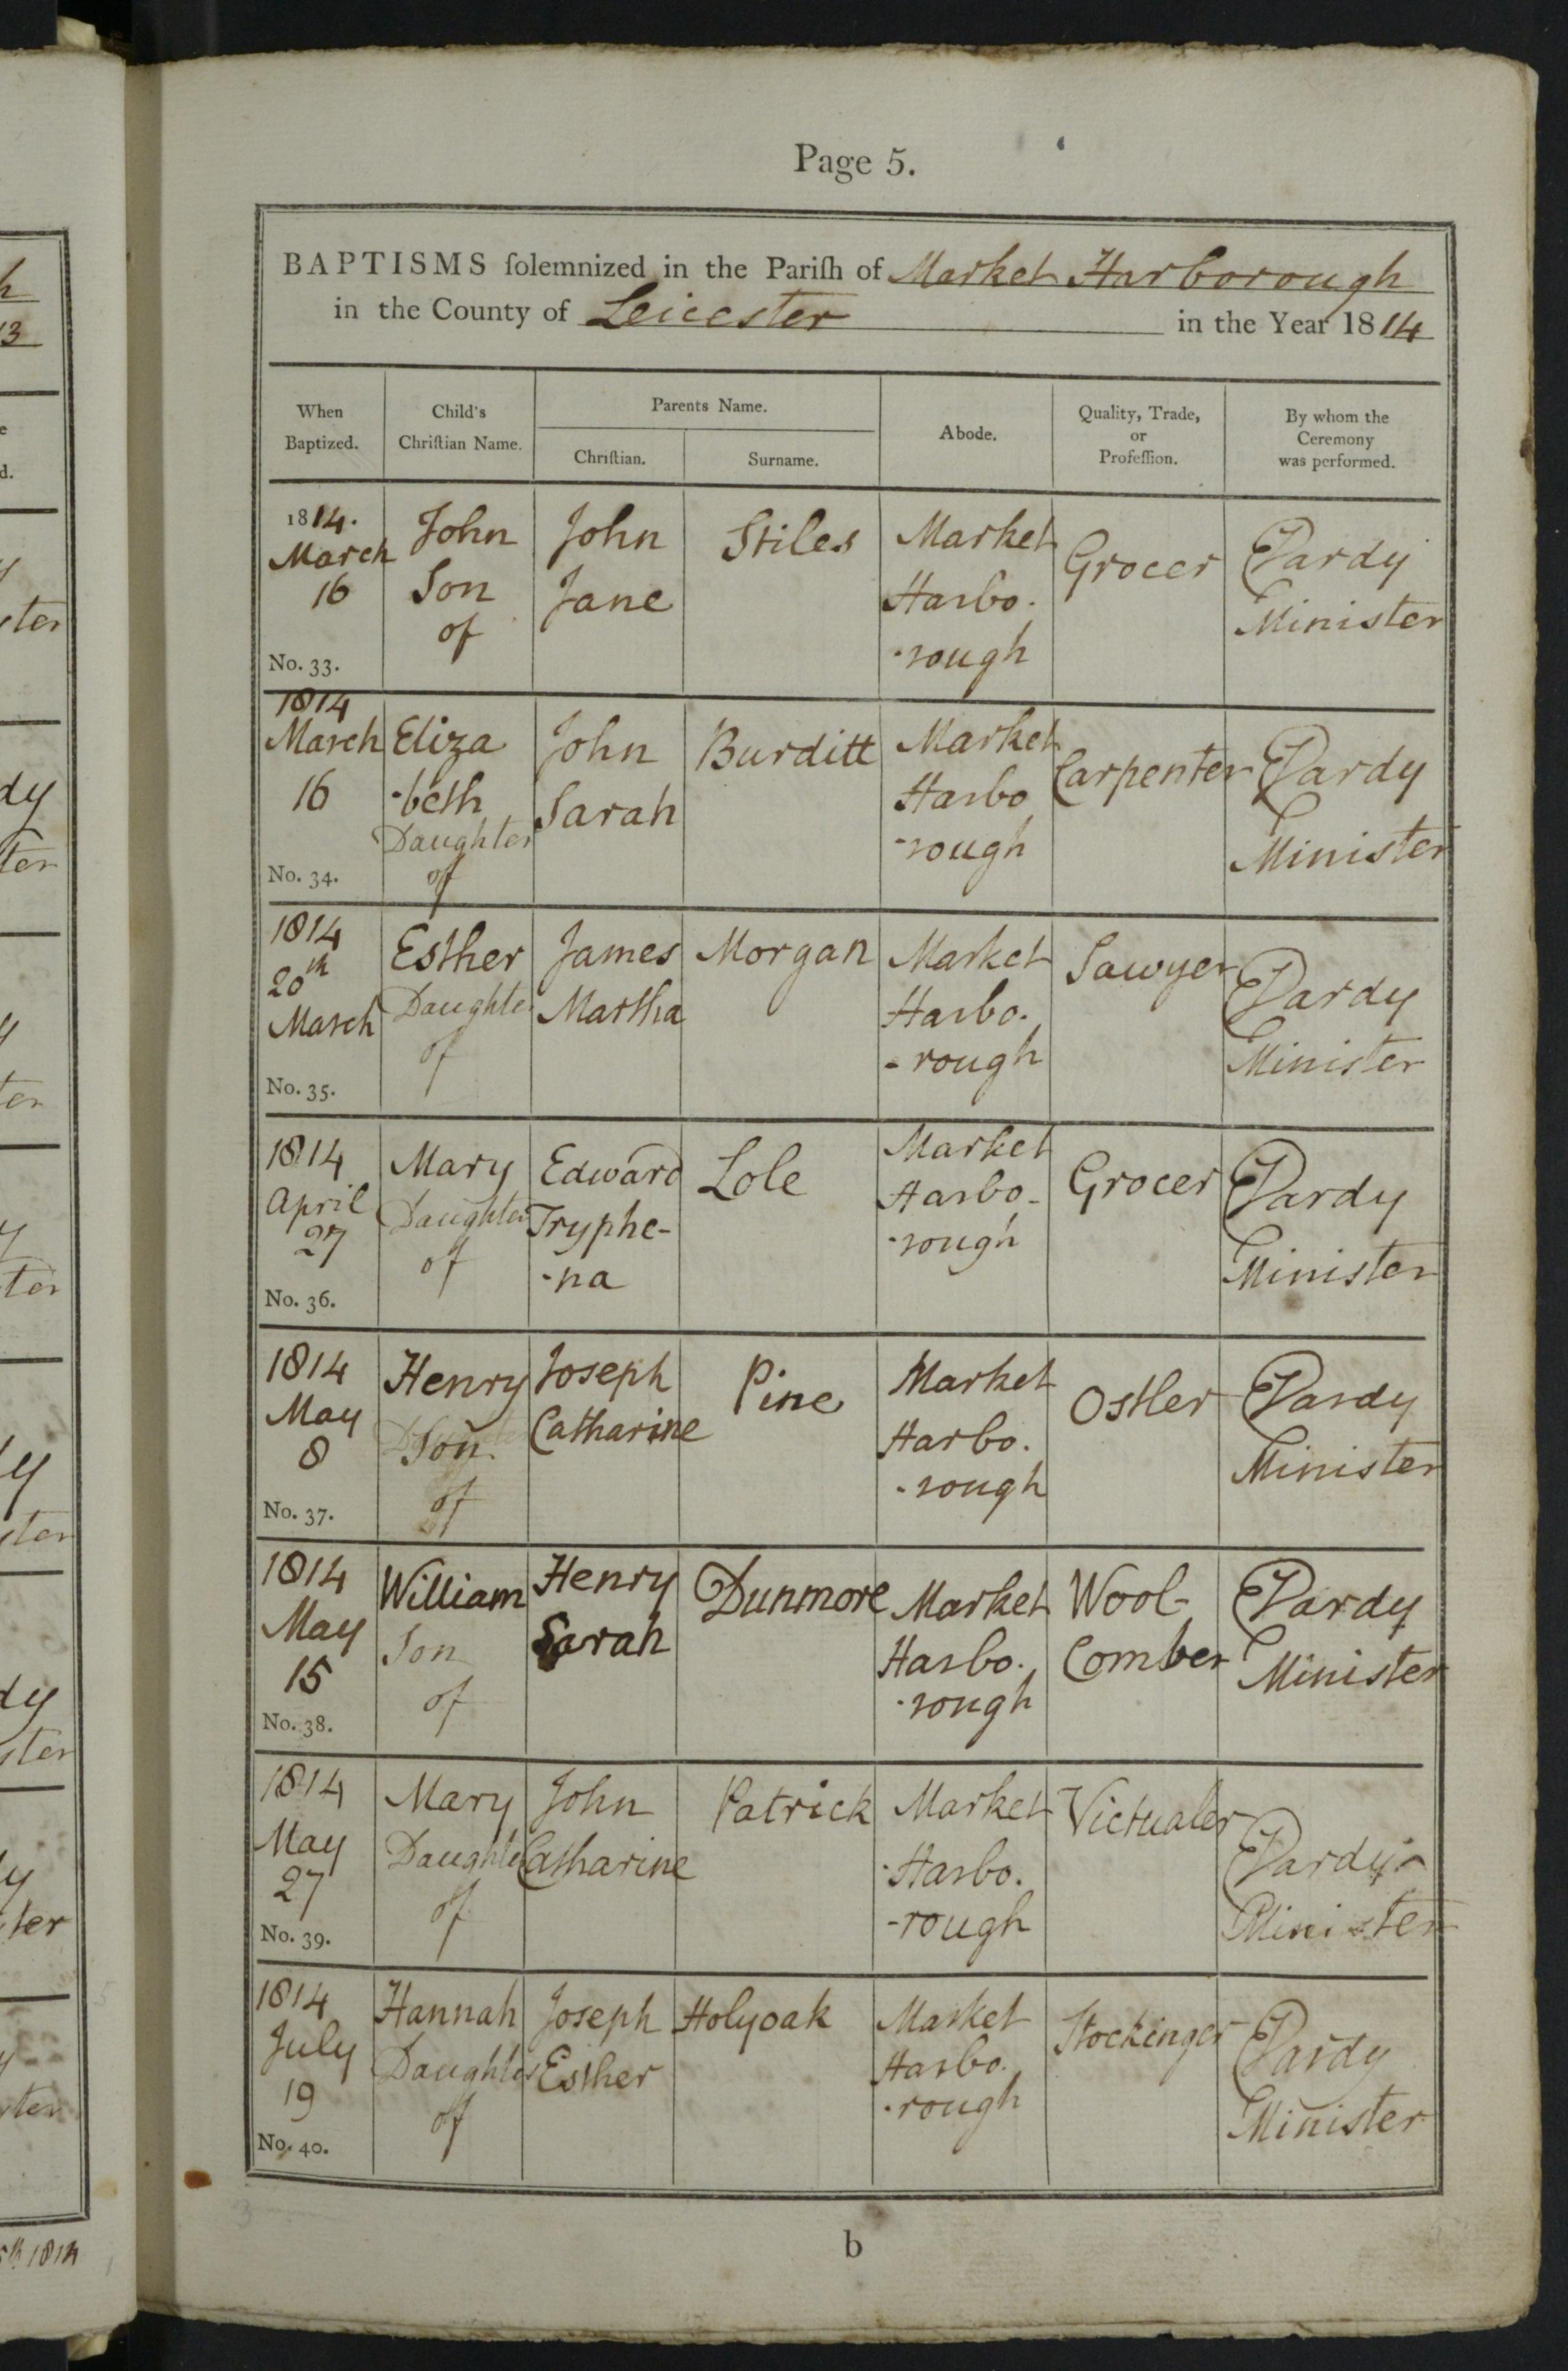 Page 5.
BAPTISMS ſolemnized in the Pariſh of Market Harborough
in the County of Leicester in the Year 1814
When Baptized.
Child's Chriſtian Name.
Parents Name.
Chriſtian.
Surname.
Abode.
Quality, Trade, or Profeſſion.
By whom the Ceremony was performed.
1814.
March
16
No. 33.
John
Son
of
John
Jane
Stiles
Market
Harbo-
-rough
Grocer
Pardy
Minister
1814
March
16
No. 34.
Eliza
-beth
Daughter
of
John
Sarah
Burditt
Market
Harbo
-rough
Carpenter
Pardy
Minister
1814
20th
March
No. 35.
Esther
Daughter
of
James
Martha
Morgan
Market
Harbo-
-rough
Sawyer
Pardy
Minister
1814
April
27
No. 36.
Mary
Daughter
of
Edward
Tryphe-
-na
Lole
Market
Harbo-
-rough
Grocer
Pardy
Minister
1814
May
8
No. 37.
Henry
Son
of
Joseph
Catharine
Pine
Market
Harbo-
-rough
Ostler
Pardy
Minister
1814
May
15
No. 38.
William
Son
of
Henry
Sarah
Dunmore
Market
Harbo-
-rough
Wool-
Comber
Pardy
Minister
1814
May
27
No. 39.
Mary
Daughter
of
John
Catharine
Patrick
Market
-Harbo-
-rough
Victualer
Pardy
Minister
1814
July
19
No. 40.
Hannah
Daughter
of
Joseph
Esther
Holyoak
Market
Harbo-
-rough
Stockinger
Pardy
Minister
b